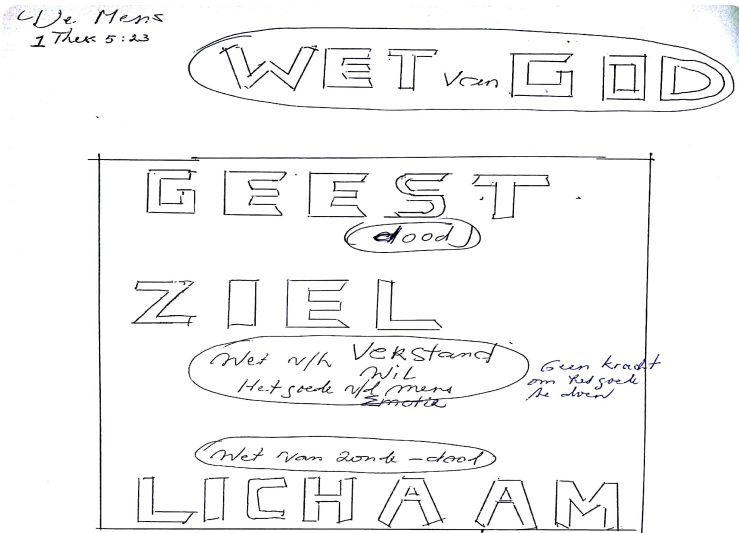 De Mens
1 Thess 5:23
WET van GOD
GEEST
dood
ZIEL
Wet v/h Verstand
Wil
Het goede v/d mens
Emotie
Geen kracht
om het goede
te doen
Wet van zonde - dood
LICHAAM